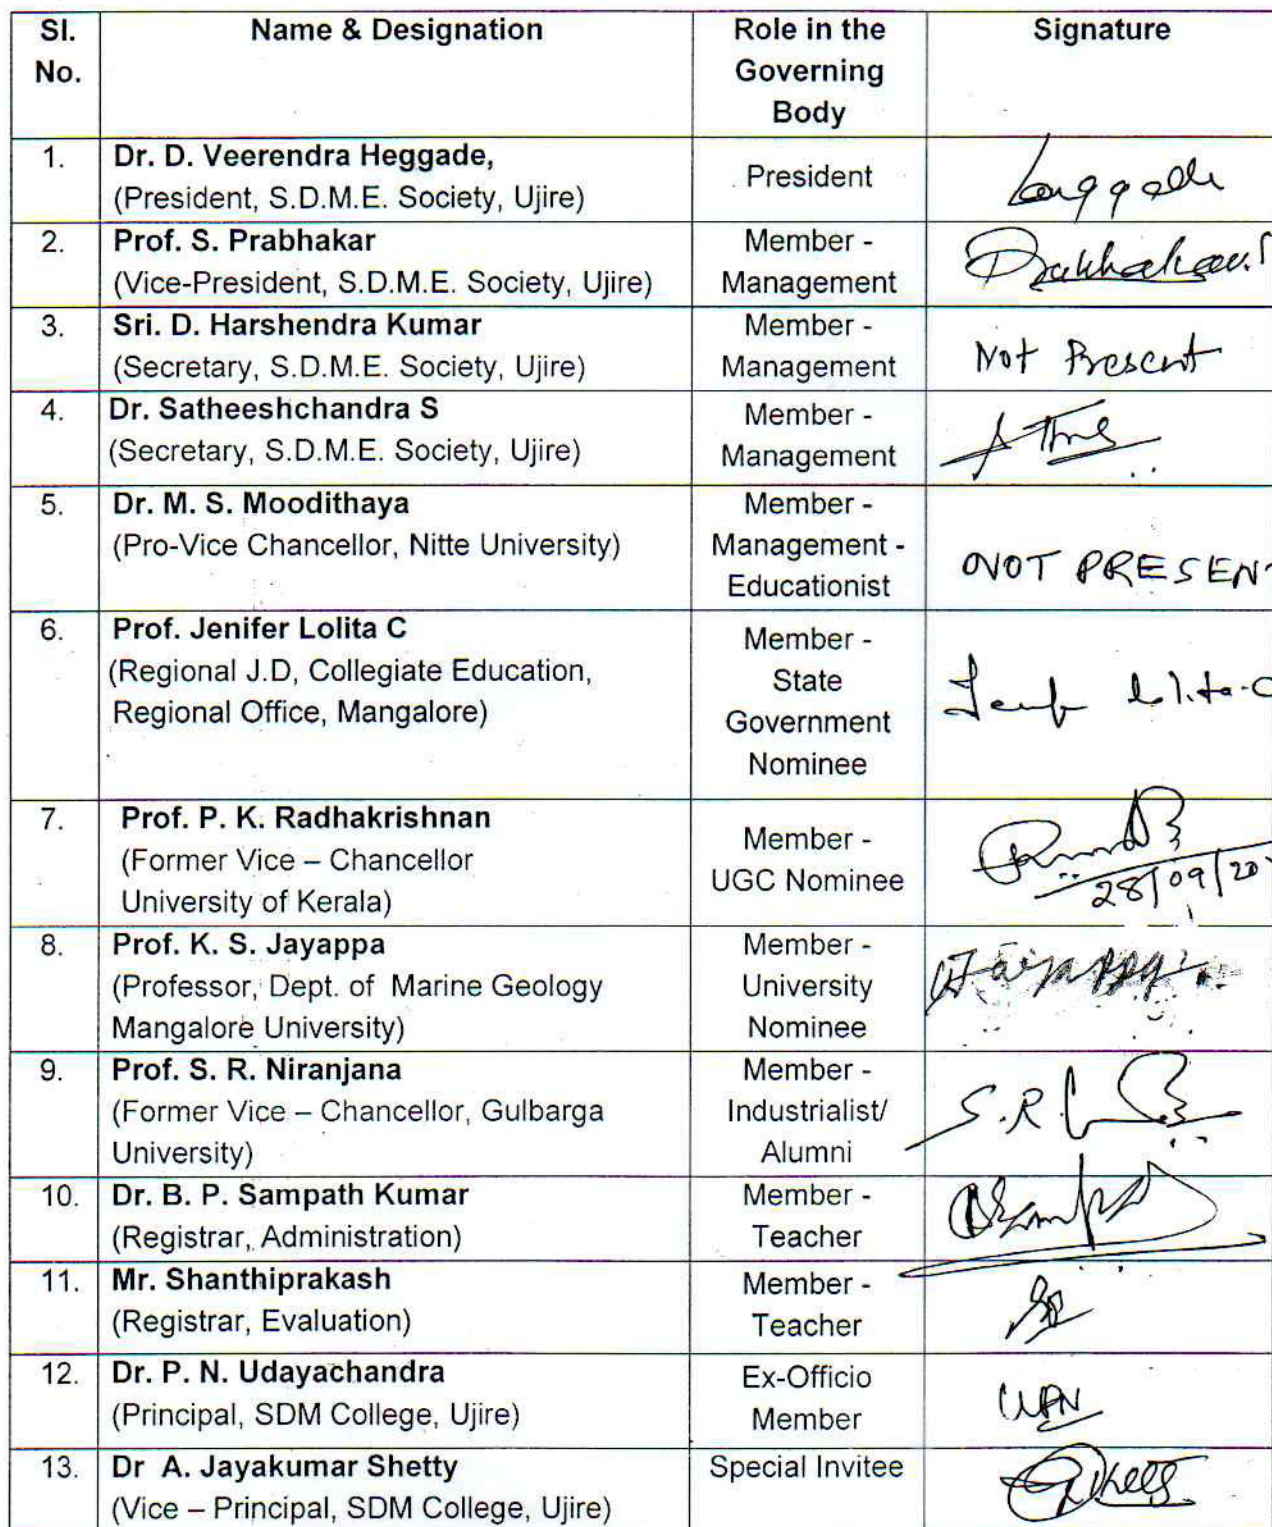 Sl. No.
Name & Designation
Role in the Governing Body
Signature
1.
Dr. D. Veerendra Heggade,
(President, S.D.M.E. Society, Ujire)
President
2.
Prof. S. Prabhakar
(Vice-President, S.D.M.E. Society, Ujire)
Member -
Management
3.
Sri. D. Harshendra Kumar
(Secretary, S.D.M.E. Society, Ujire)
Member -
Management
Not Present
4.
Dr. Satheeshchandra S
(Secretary, S.D.M.E. Society, Ujire)
Member -
Management
5.
Dr. M. S. Moodithaya
(Pro-Vice Chancellor, Nitte University)
Member -
Management -
Educationist
NOT PRESEN
6.
Prof. Jenifer Lolita C
(Regional J.D, Collegiate Education,
Regional Office, Mangalore)
Member -
State
Government
Nominee
7.
Prof. P. K. Radhakrishnan
(Former Vice – Chancellor
University of Kerala)
Member -
UGC Nominee
28/09/20
8.
Prof. K. S. Jayappa
(Professor, Dept. of Marine Geology
Mangalore University)
Member -
University
Nominee
9.
Prof. S. R. Niranjana
(Former Vice – Chancellor, Gulbarga
University)
Member -
Industrialist/
Alumni
S.R.
10.
Dr. B. P. Sampath Kumar
(Registrar, Administration)
Member -
Teacher
11.
Mr. Shanthiprakash
(Registrar, Evaluation)
Member -
Teacher
12.
Dr. P. N. Udayachandra
(Principal, SDM College, Ujire)
Ex-Officio
Member
13.
Dr A. Jayakumar Shetty
(Vice – Principal, SDM College, Ujire)
Special Invitee